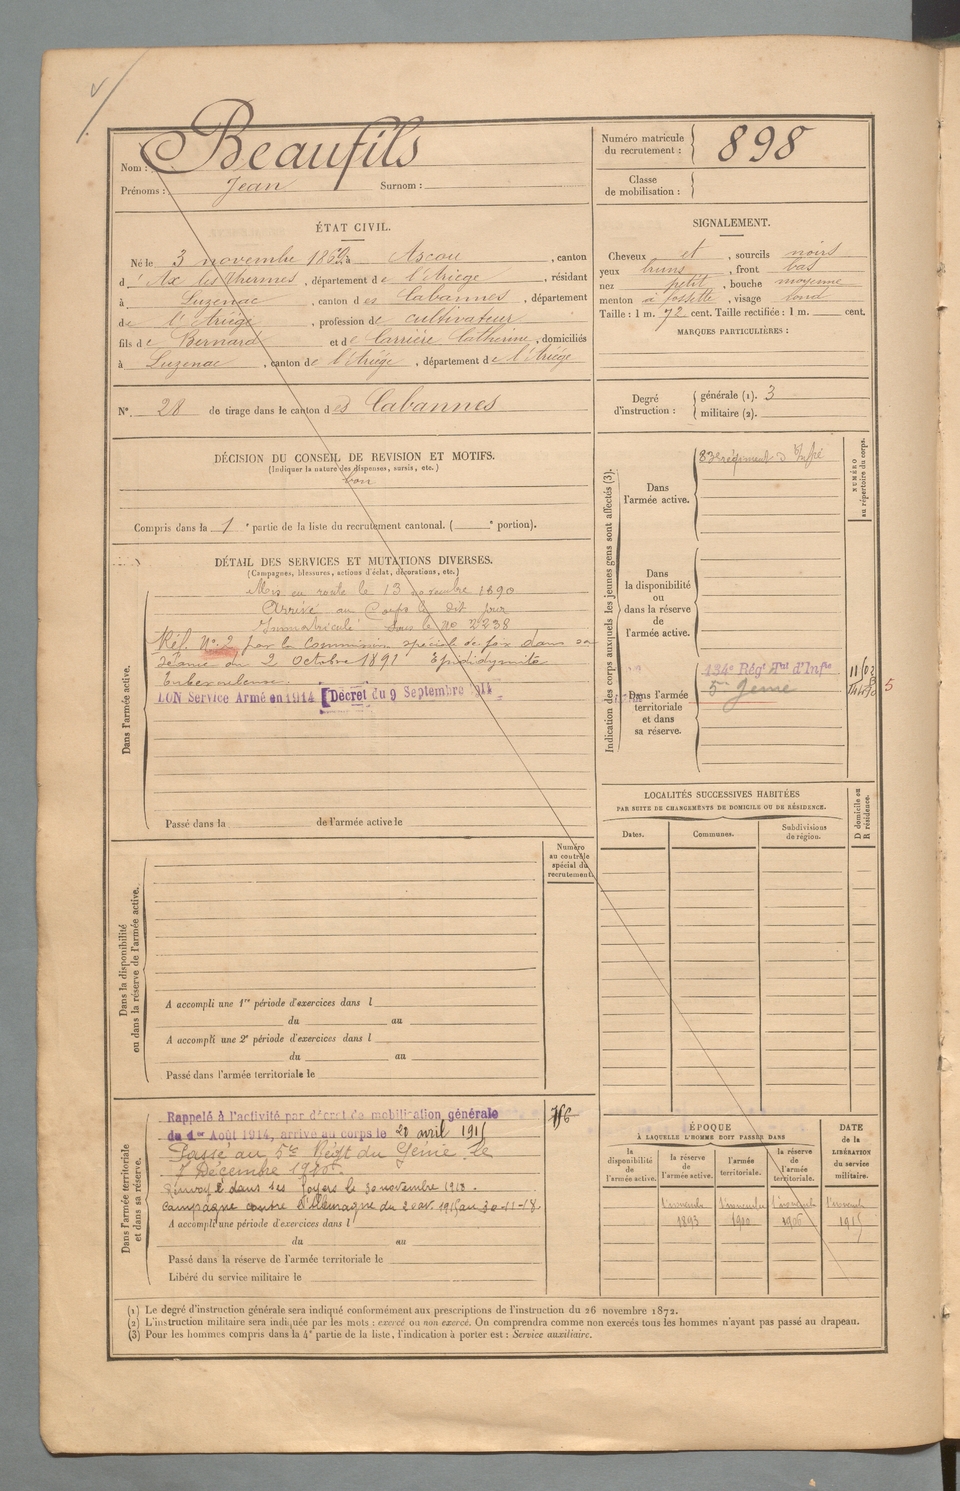 Nom : Beaufils
Prénoms : Jean Surnom :
Numéro matricule du recrutement : 898
Classe de mobilisation :
ÉTAT CIVIL.
Né le 3 novembre à Ascou, canton
d'Ax les Thermes, département de l'Ariège, résidant
à Luzenac, canton des Cabannes, département
de l'Ariège, profession de cultivateur
fils de Bernard et de Carrière Catherine, domiciliés
à Luzenac, canton de l'Ariége, département de l'Ariége
N° 28 de tirage dans le canton des Cabannes
SIGNALEMENT.
Cheveux et, sourcils noirs
yeux bruns, front bas
nez petit, bouche moyenne
menton à fossette, visage rond
Taille : 1 m. 72 cent. Taille rectifiée : 1 m. cent.
MARQUES PARTICULIÈRES :
Degré d'instruction : générale (1). 3
militaire (2).
DÉCISION DU CONSEIL DE REVISION ET MOTIFS.
(Indiquer la nature des dispenses, sursis, etc.)
bon
Compris dans la 1e partie de la liste du recrutement cantonal. ( e portion).
DÉTAIL DES SERVICES ET MUTATIONS DIVERSES.
(Campagnes, blessures, actions d'éclat, décorations, etc.)
Dans l'armée active.
Mis en route le 13 novembre 1890
Arrivé au Corps le dit jour
Immatriculé sous le No 2238
Réf. No 2 par la Commission spéciale de foix dans sa
séance du 2 Octobre 1891 Epididymite
Tuberculeuse.
BON Service Armé en 1914 [Décret du 9 Septembre 1914
Passé dans la de l'armée active le
Indication des corps auxquels les jeunes gens sont affectés (3).
NUMÉRO au répertoire du corps.
Dans l'armée active.
83e régiment d'Infie
Dans la disponibilité ou dans la réserve de l'armée active.
Dans l'armée territoriale et dans sa réserve.
134e Régt Tal d'Infie
5me Génie
5
LOCALITÉS SUCCESSIVES HABITÉES
PAR SUITE DE CHANGEMENTS DE DOMICILE OU DE RÉSIDENCE.
Dates. Communes. Subdivisions de région.
D domicile ou R résidence.
Numéro au contrôle spécial du recrutement.
Dans la disponibilité ou dans la réserve de l'armée active.
A accompli une 1re période d'exercices dans l
du au
A accompli une 2e période d'exercices dans l
du au
Passé dans l'armée territoriale le
Dans l'armée territoriale et dans sa réserve.
Rappelé à l'activité par décret de mobilisation générale
du 1er Août 1914, arrivé au corps le 20 avril 1915
Passé au 5e Régt du Génie le
Décembre
Renvoyé dans ses foyers le 30 novembre 1918.
Campagne contre l'Allemagne du 20 av. 1915 au 30-11-18
A accompli une période d'exercices dans l
du au
Passé dans la réserve de l'armée territoriale le
Libéré du service militaire le
ÉPOQUE
À LAQUELLE L'HOMME DOIT PASSER DANS
la disponibilité de l'armée active.
la réserve de l'armée active. 1er novembre 1893
l'armée territoriale. 1er novembre 1900
la réserve de l'armée territoriale. 1er novembre 1906
DATE de la LIBÉRATION du service militaire. 1er novembre 1915
(1) Le degré d'instruction générale sera indiqué conformément aux prescriptions de l'instruction du 26 novembre 1872.
(2) L'instruction militaire sera indiquée par les mots : exercé ou non exercé. On comprendra comme non exercés tous les hommes n'ayant pas passé au drapeau.
(3) Pour les hommes compris dans la 4e partie de la liste, l'indication à porter est : Service auxiliaire.